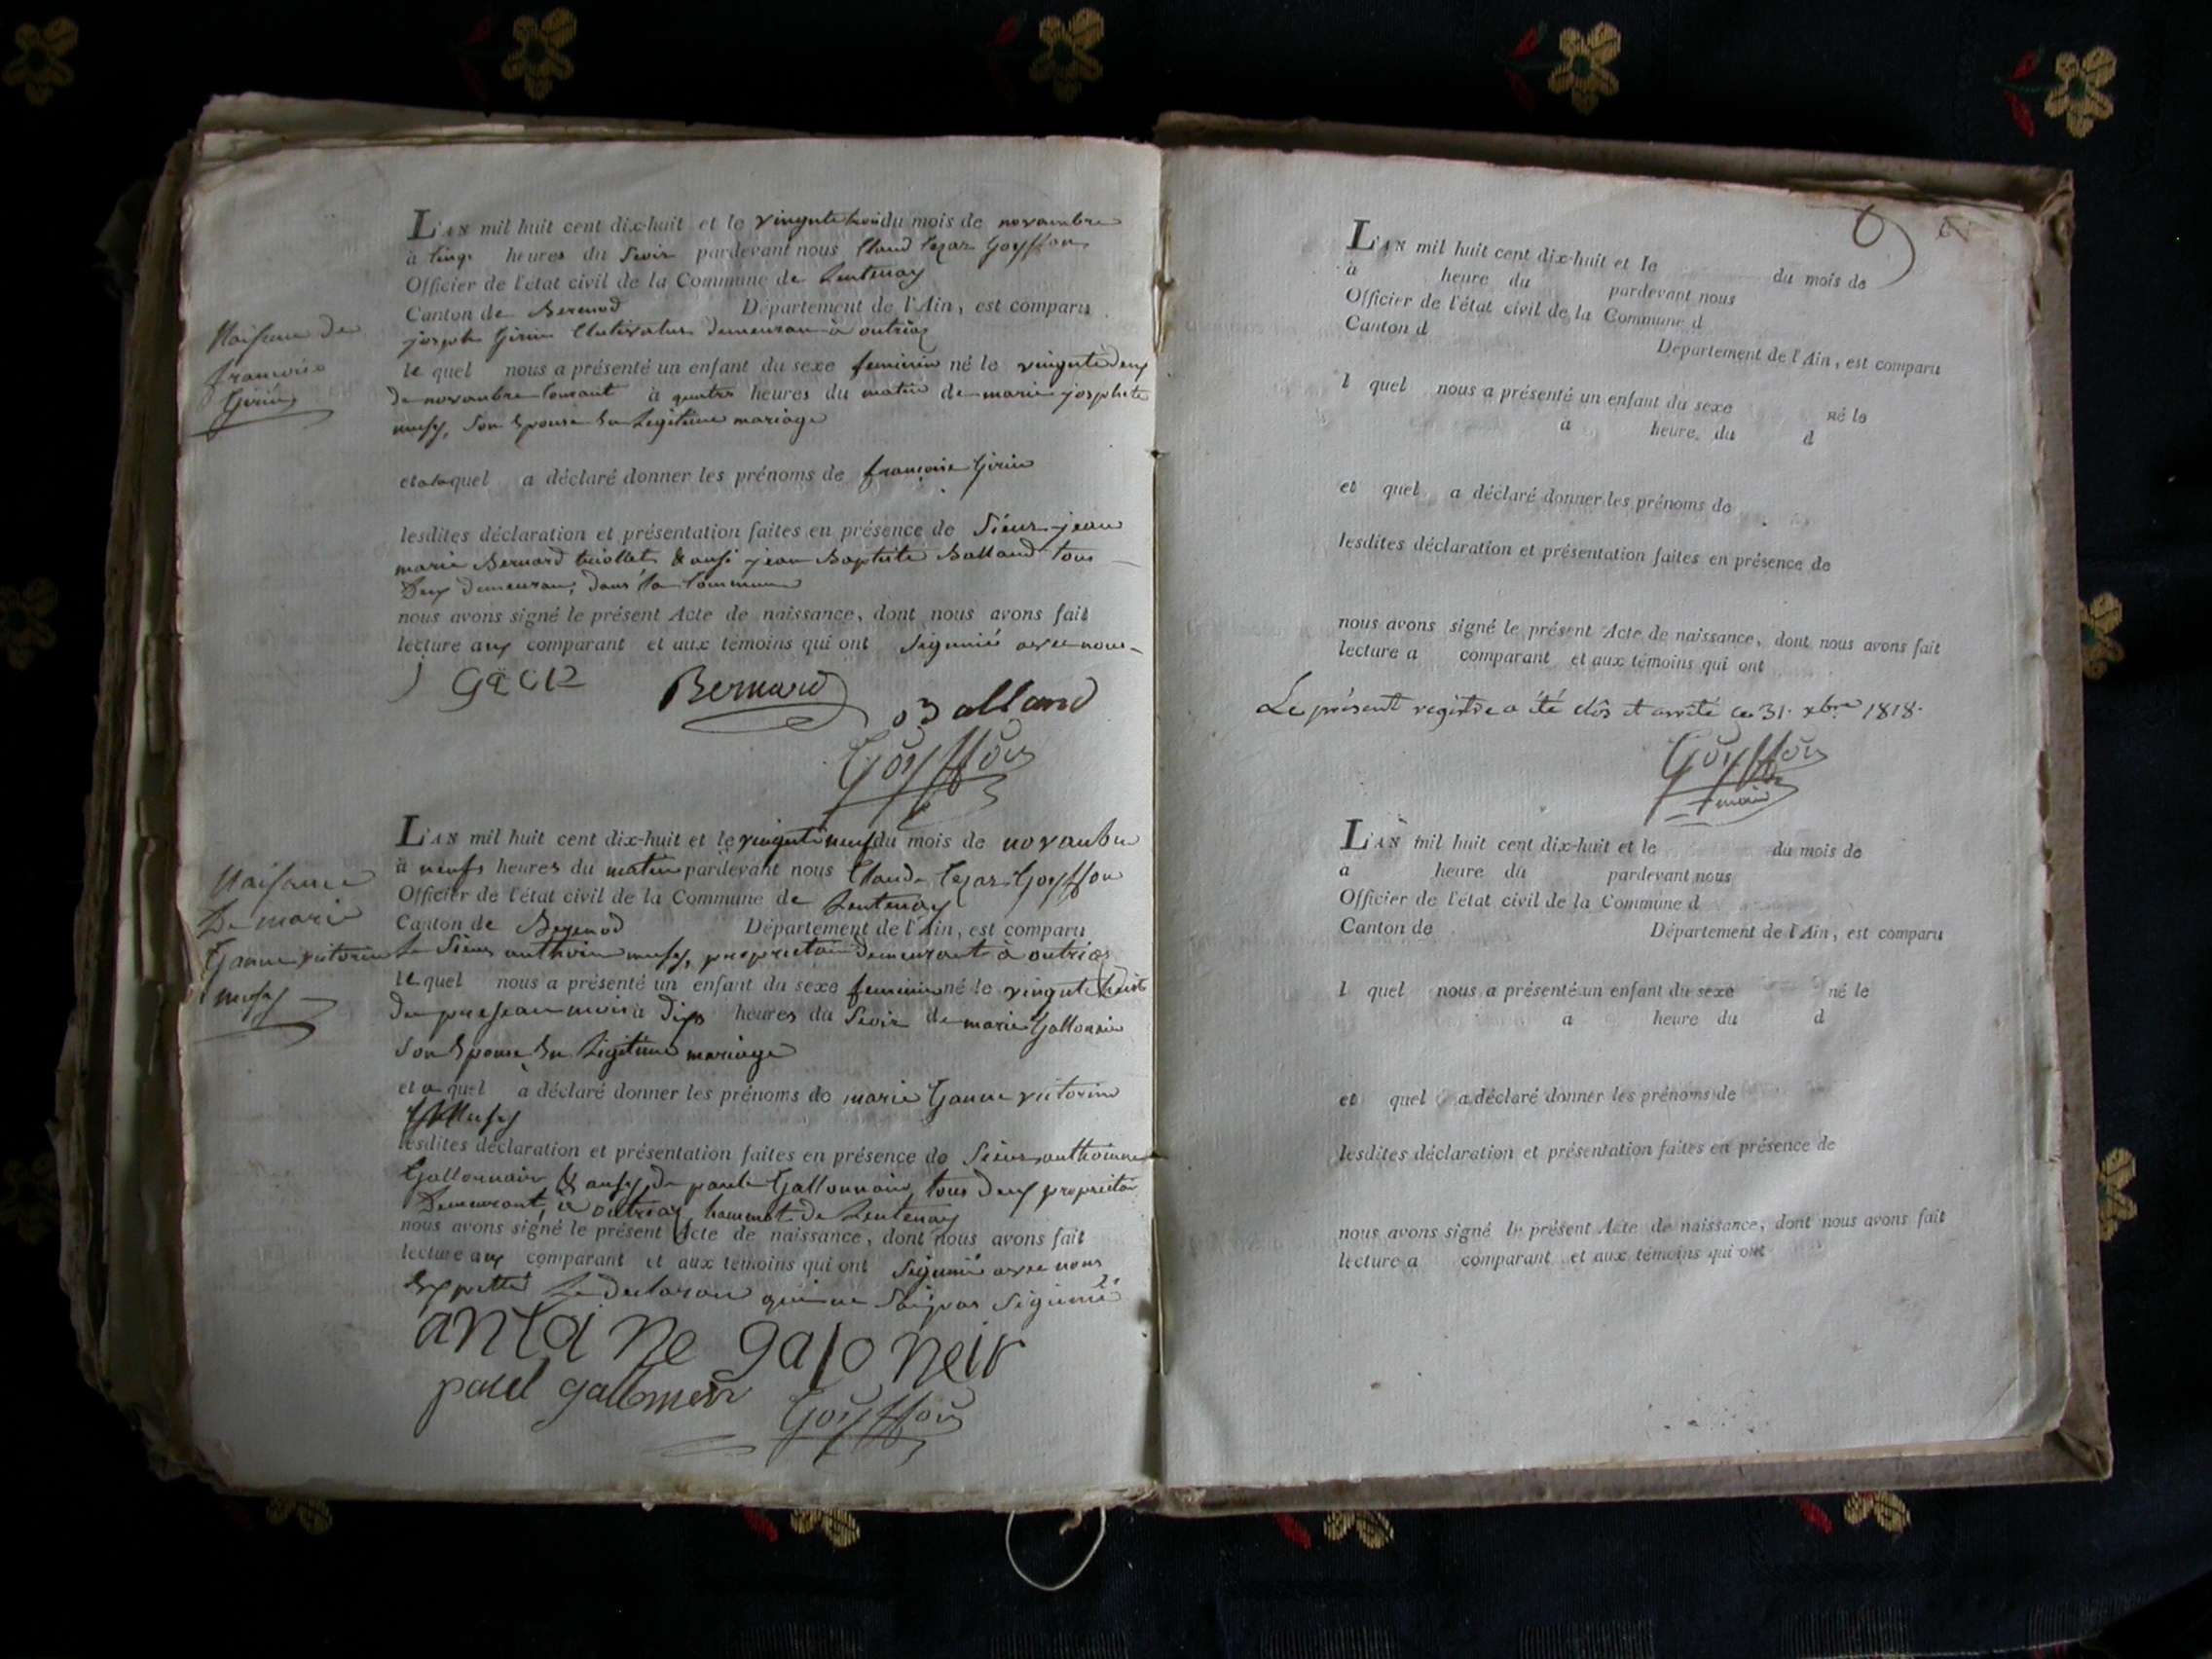 L'AN mil huit cent dix-huit et le vingute trois du mois de novambre
à cinq heures du Soir pardevant nous Claud Cezar Goyffon
Officier de l'état civil de la Commune de Lentenay
Canton de Brenod Département de l'Ain, est comparu
joseph Girin Cultivateur demeuran à outriaz
Naisance de
francoise
Girin
le quel nous a présenté un enfant du sexe feminin né le vingute deux
de novambre courant à quatre heures du matin de marie josphete
son Epouse En Legitime mariage
et a la quel a déclaré donner les prénoms de francoise Girin
lesdites déclaration et présentation faites en présence de Sieur jean
marie Bernard & ausi jean Baptiste Balland tous
Deux demeuran, dans la Commune
nous avons signé le présent Acte de naissance, dont nous avons fait
lecture aux comparant et aux témoins qui ont Signié avec nous
Bernard
Balland
Goyffon
L'AN mil huit cent dix-huit et le vingute neuf du mois de novanbre
à neufs heures du matin pardevant nous Claude Cezar Goyffon
Officier de l'état civil de la Commune de Lentenay
Canton de Brenod Département de l'Ain, est comparu
Naisance
De marie
Ganne victorine
le Sieur anthoine proprietair Demeurant à outriaz
le quel nous a présenté un enfant du sexe feminin né le vingute huit
du presean mois à Dix heures du Soir de marie Gallonnair
son Epouse En Legitime mariage
et a quel a déclaré donner les prénoms de marie Ganne victorine
lesdites déclaration et présentation faites en présence de Sieur anthoinne
Gallonnair & ausy de paul Gallonnair, tous Deux proprietair
Demeurant, à outriaz hammot de Lentenay
nous avons signé le présent Acte de naissance, dont nous avons fait
lecture aux comparant et aux témoins qui ont Signié avec nous
Exepetté Le declaran qui ne Sai pas Signié
antoine galoneir
paul
Goyffon
L'AN mil huit cent dix-huit et le du mois de
à heure du pardevant nous
Officier de l'état civil de la Commune d
Canton d
Département de l'Ain, est comparu
l quel nous a présenté un enfant du sexe né le
à heure du d
et quel a déclaré donner les prénoms de
lesdites déclaration et présentation faites en présence de
nous avons signé le présent Acte de naissance, dont nous avons fait
lecture a comparant et aux témoins qui ont
Le présent registre a été clôs et arrêté ce 31. xbre 1818.
Goyffon
maire
L'AN mil huit cent dix-huit et le du mois de
à heure du pardevant nous
Officier de l'état civil de la Commune d
Canton de Département de l'Ain, est comparu
l quel nous a présenté un enfant du sexe né le
à heure du d
et quel a déclaré donner les prénoms de
lesdites déclaration et présentation faites en présence de
nous avons signé le présent Acte de naissance, dont nous avons fait
lecture a comparant et aux témoins qui ont